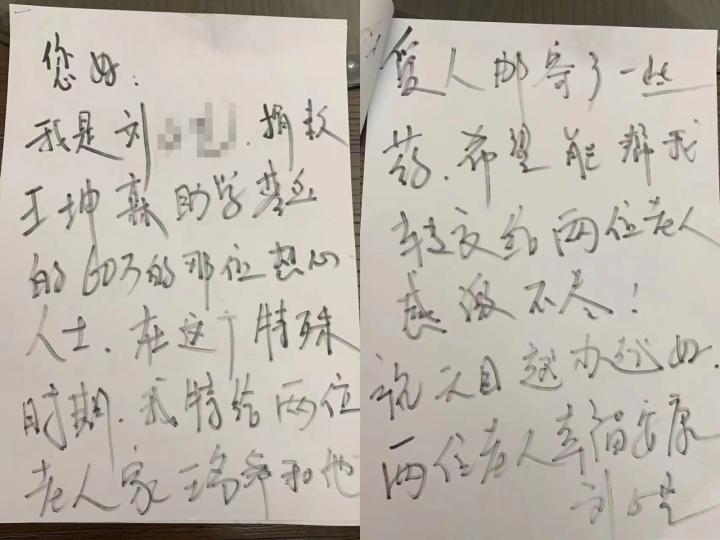 您好:
我是刘 捐款
王坤森助学基金
的60万的那位热心
人士、在这个特殊
时期.我特给两位
老人家王 和他
爱人邮寄了一些
药.希望能帮我
转交给两位老人
感激不尽!
祝天目越办越好.
两位老人幸福安康
刘